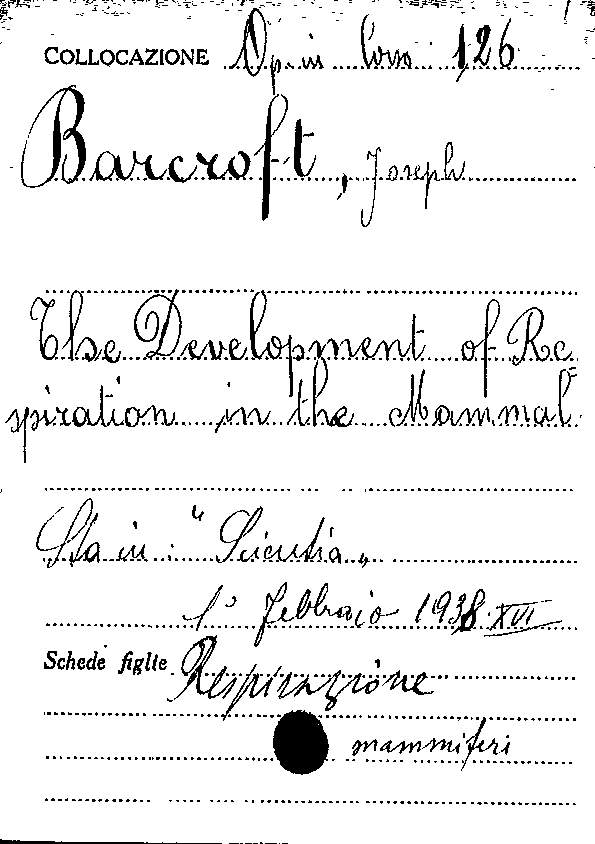 COLLOCAZIONE Op. in Corso 126
Barcroft, Joseph
The Development of Re=
spiration in the Mammal.
Sta in: "Scientia"
1° febbraio 1938 XVI
Schede figlie Respirazione
mammiferi